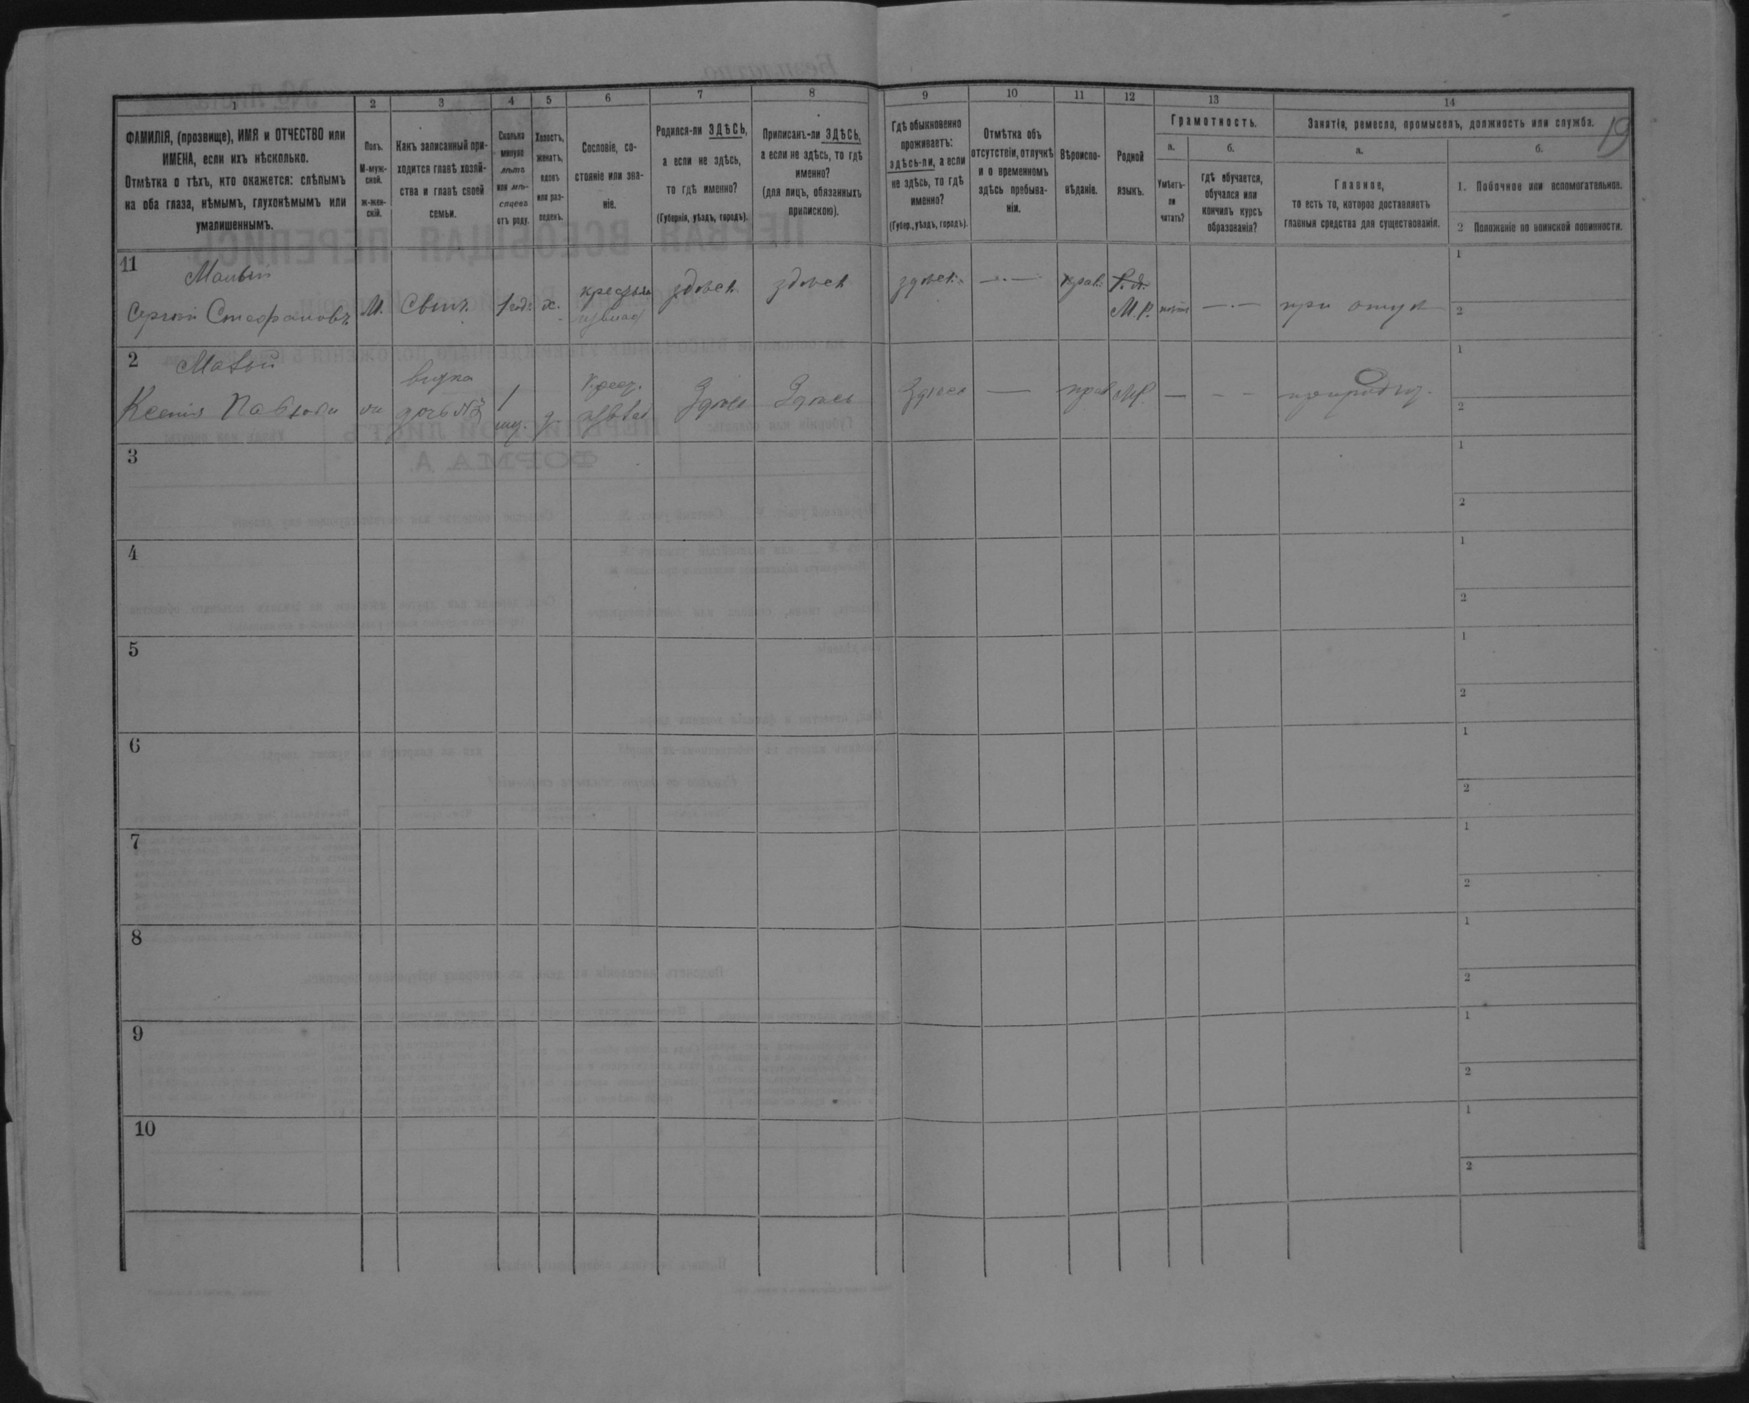 1
2
3
4
5
6
7
8
9
10
11
12
13
14
19
ФАМИЛІЯ, (прозвище), ИМЯ и ОТЧЕСТВО или
ИМЕНА, если ихъ нѣсколько.
Отмѣтка о тѣхъ, кто окажется: слѣпымъ
на оба глаза, нѣмымъ, глухонѣмымъ или
умалишеннымъ.
Полъ.
М-муж-
ской.
ж-жен-
скій.
Какъ записанный при-
ходится главѣ хозяй-
ства и главѣ своей
семьи.
Сколько
минуло
лѣтъ
или мѣ-
сяцевъ
отъ роду.
Холостъ,
женатъ,
вдовъ
или раз-
веденъ.
Сословіе, со-
стояніе или зва-
ніе.
Родился-ли ЗДѢСЬ,
а если не здѣсь,
то гдѣ именно?
(Губернія, уѣздъ, городъ).
Приписанъ-ли ЗДѢСЬ,
а если не здѣсь, то гдѣ
именно?
(для лицъ, обязанныхъ
припискою).
Гдѣ обыкновенно
проживаетъ:
здѣсь-ли, а если
не здѣсь, то гдѣ
именно?
(Губер., уѣздъ, городъ).
Отмѣтка объ
отсутствіи, отлучкѣ
и о временномъ
здѣсь пребыва-
ніи.
Вѣроиспо-
вѣданіе.
Родной
языкъ.
Грамотность.
а.
Умѣетъ-
ли
читать?
б.
гдѣ обучается,
обучался или
кончилъ курсъ
образованія?
Занятіе, ремесло, промыселъ, должность или служба.
а.
Главное,
то есть то, которое доставляетъ
главныя средства для существованія.
б.
1. Побочное или вспомогательное.
2 Положеніе по воинской повинности.
11
Малый
Сергій Стефановъ
М.
Сынъ
1 годъ
х.
здѣсь
здѣсь
здѣсь
— · —
прав.
М.Р.
— · —
при отцѣ
1
2
2
Ксенія Павлова
дочь №3
1
Здѣсь
Здѣсь
Здѣсь
—
прав
МР.
—
- -
1
2
3
1
2
4
1
2
5
1
2
6
1
2
7
1
2
8
1
2
9
1
2
10
1
2